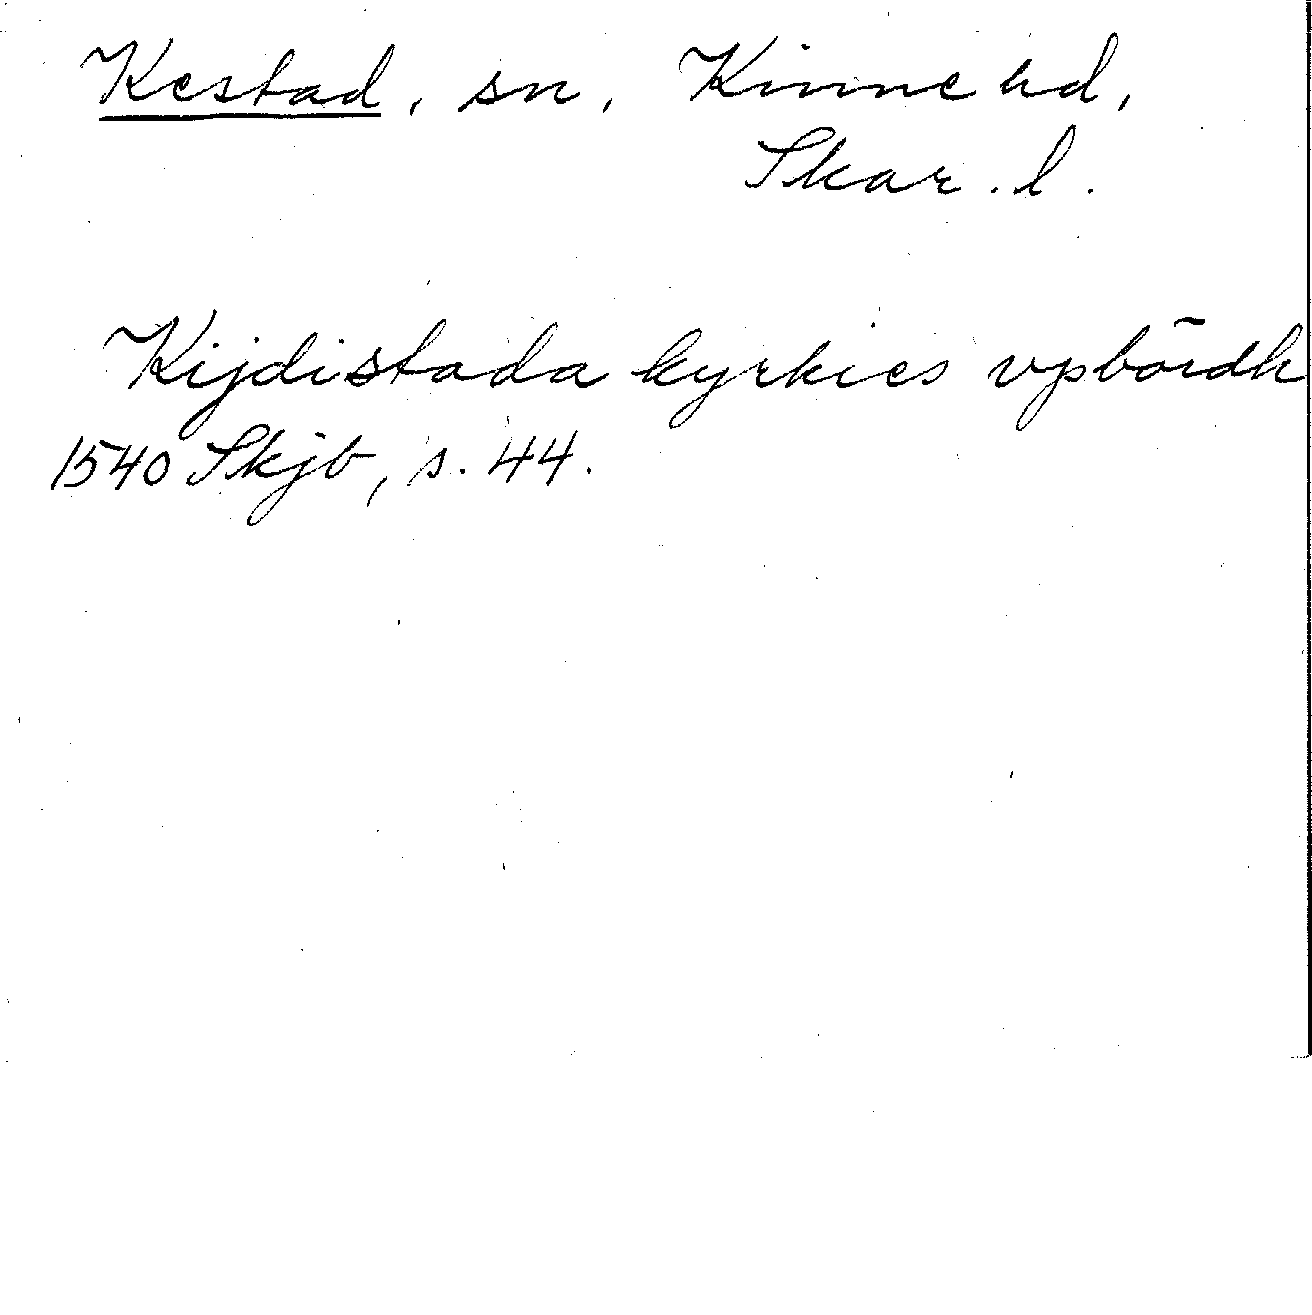 Kestad, sn, Kinne hd,
Skar. l.
Kijdistada kyrkies vpbōrdh
1540 Skjb, s. 44.